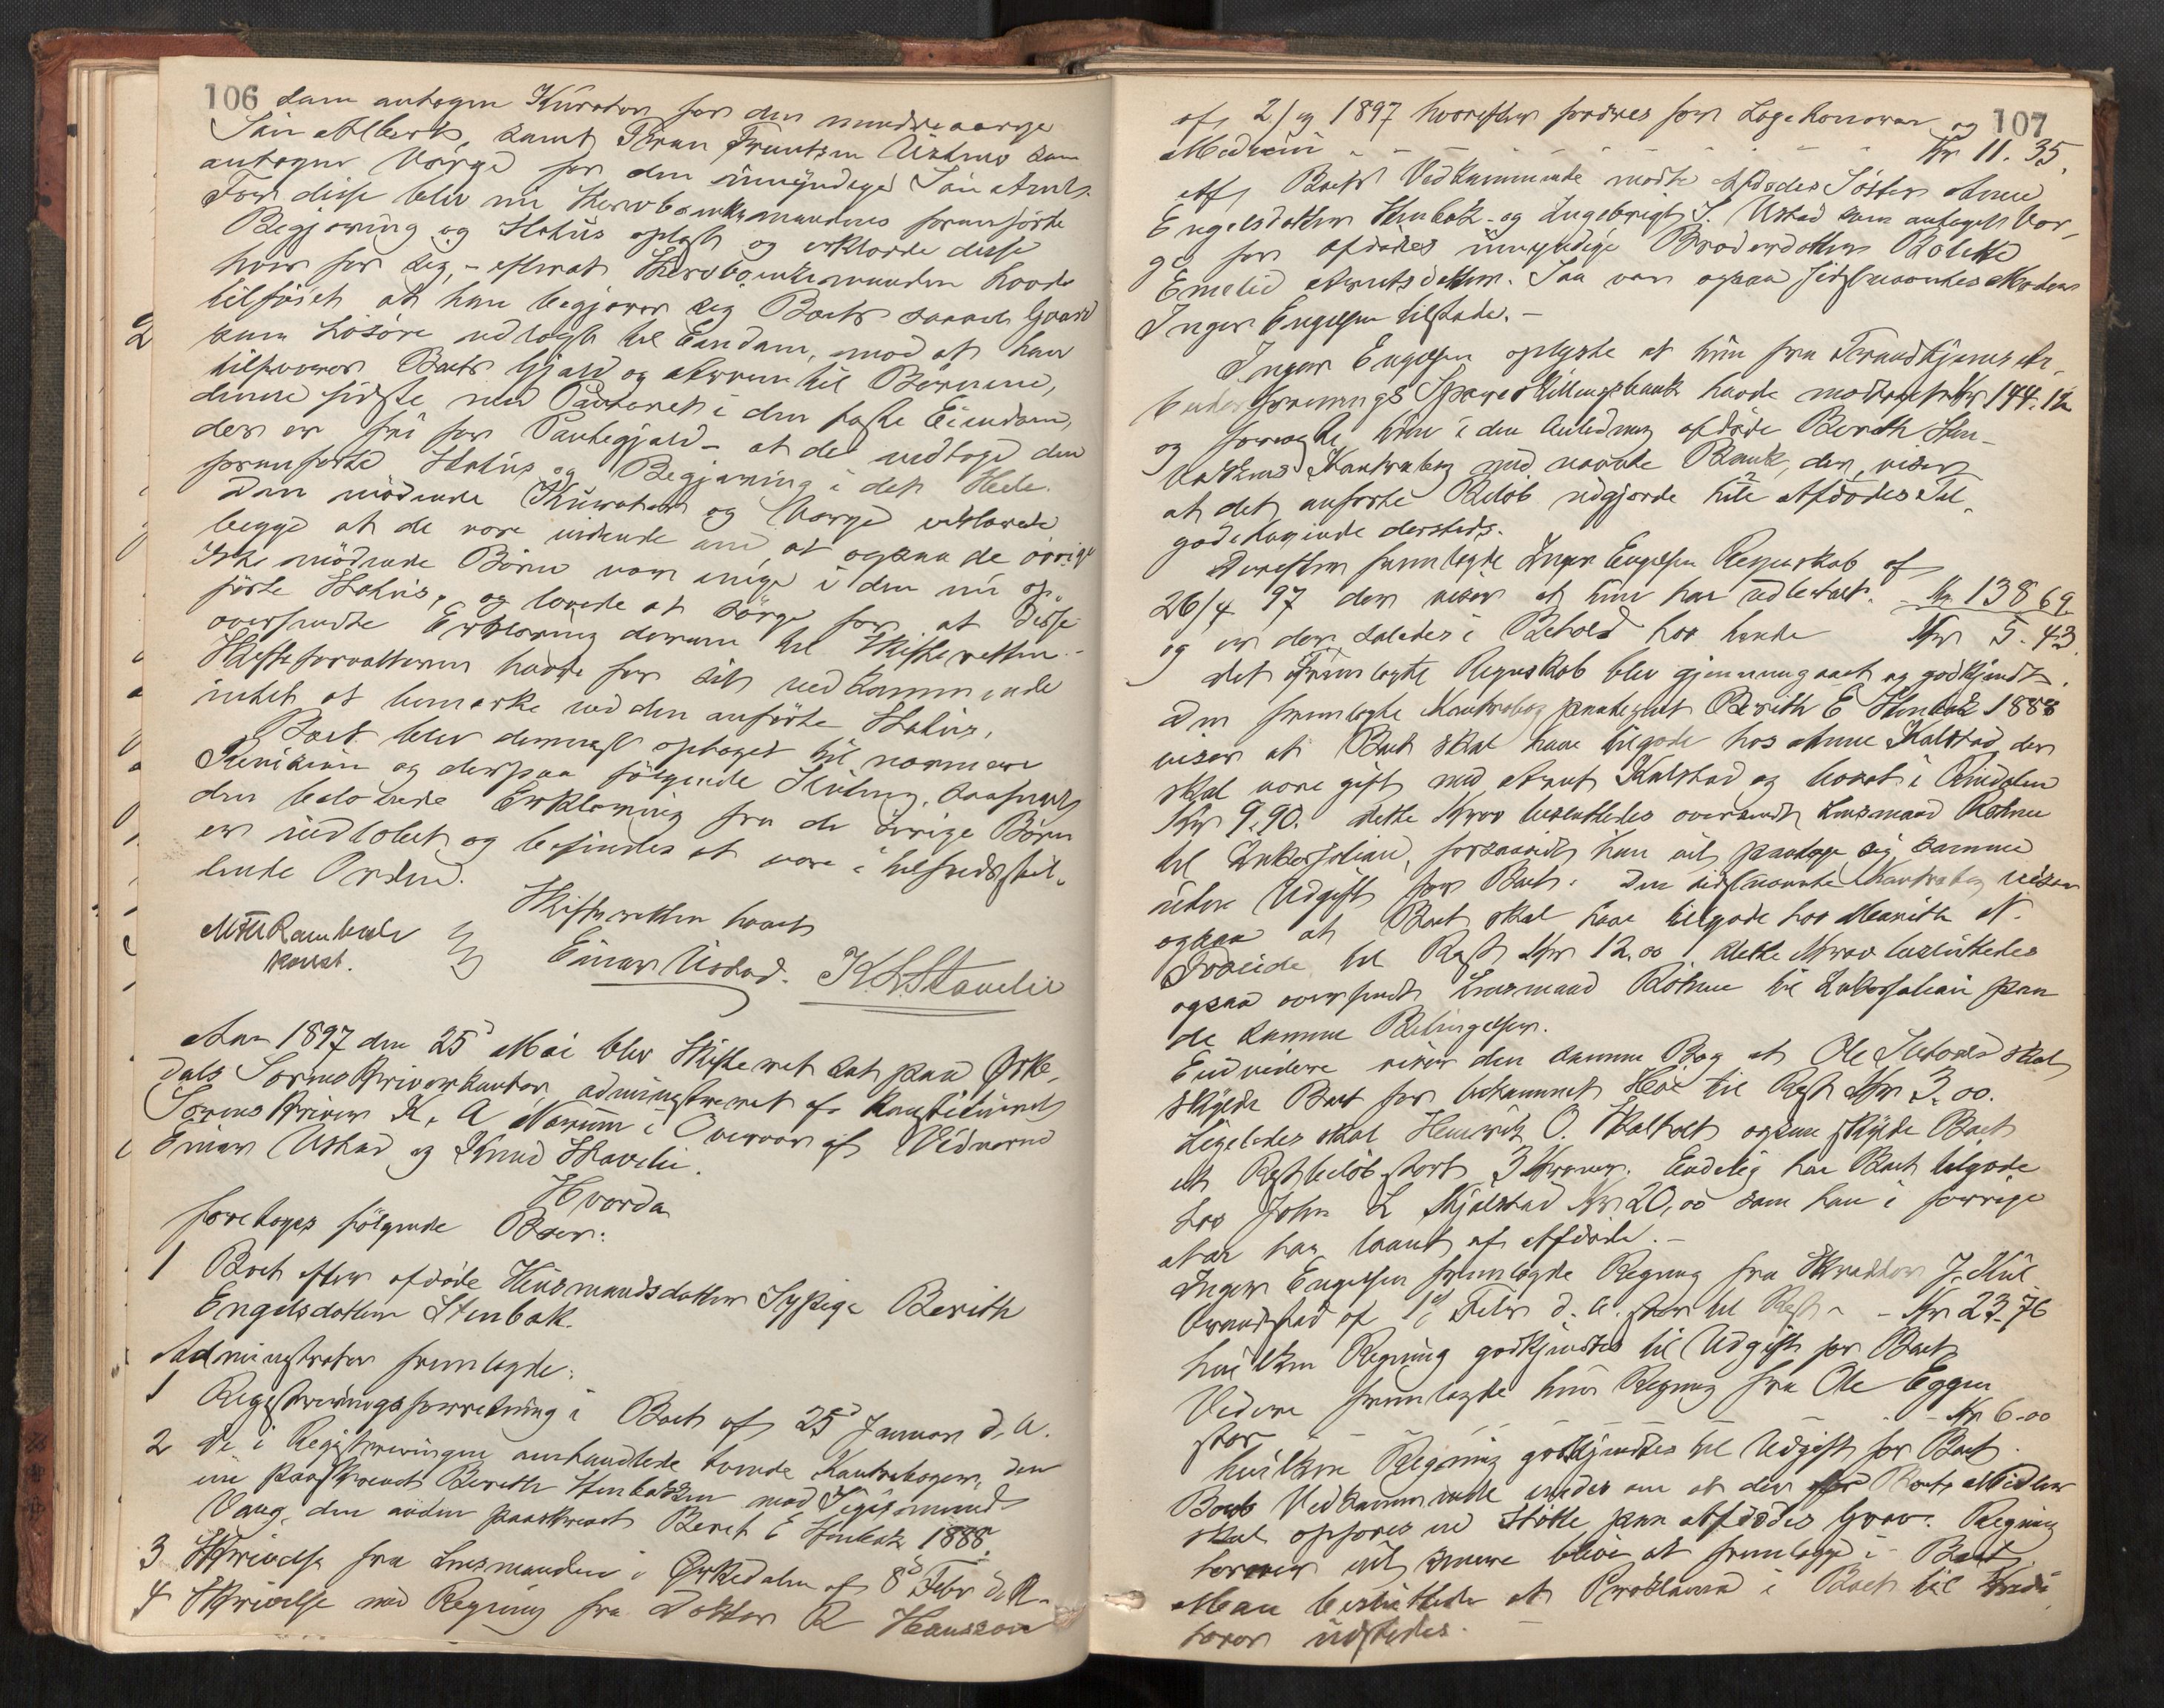 106
som antagen Kurator for den mindreaarige
Søn Albert, samt Frans Frantsen Ustmo som
antagen Værge for den umyndige Søn Arnt.
For disse blev nu Skrvbænkemandens foranførte
Begjæring og Status oplæst og erklærte disse
hver for sig, - efterat Skrvbænkemanden havde
tilføiet at han begjærer sig Boets saavel Gaard
som Løsøre udlagt til Eiendom, mod at han
tilsvarer Boets Gjæld og Arven til Børnene,
denne sidste med Panteret i den faste Eiendom,
der er fri for Pantegjæld - at de vedtoge den
foranførte Status og Begjæring i det Hele.
Den mødende Kurator og Værge erklærede
begge at de vare vidende om at ogsaa de øvrige
ikke mødende Børn vare enige i den nu op-
førte Status, og lovede at sørge for at disse
oversendte Erklæring derom til Skifteretten.
Skifteforvalteren havde for sit vedkommende
intet at bemærke ved den anførte Status.
Boet blev dernæst optaget til nærmere
Revision og derpaa følgende Slutning, saafremt
den belovede Erklæring fra de øvrige Børn
er indløbet og befindes at være i tilfredsstil-
lende Orden.
Skifteretten hævet
Konst.
Einar Ustad. K. L. Skavlie
Aar 1897 den 25 Mai blev Skifteret sat paa Ørke-
dals Sorenskriverkontor, administreret af konstitueret
Sorenskriver K. A. Narum i Overvær af Vidnerne
Einar Ustad og Knud Skavlie.
Hvorda
foretoges følgende Boer:
1 Boet efter afdøde Husmandsdatter Sypige Berith
Engelsdatter Stenbak.
Administrator fremlagde:
1 Registreringsforretning i Boet af 25 Januar d. A.
2 De i Registreringen omhandlede tvende Kontrabøger, den
ene paaskrevet Berith Stenbakken med Sigismund
Vang, den anden paaskrevet Berit E Stenbak 1888.
3 Skrivelse fra Lensmanden i Ørkedalen af 8 Febr d. A.
4 Skrivelse med Regning fra Doktor R Hanssen
107
af 2/4 1897 hvorefter fordres for Lægehonorar og
Medicin - - - - - - Kr 11.35.
Af Boets Vedkommende mødte Afdødes Søster Anne
Engelsdatter Stenbak og Ingebrigt J. Ustad som antaget Vær-
ge for afdødes umyndige Broderdatter Bolette
Emelie Arntsdatter. Saa var ogsaa sidstnævntes Moder
Inger Engelsen tilstede. -
Inger Engelsen oplyste at hun fra Trondhjems Ar-
beiderforenings Spareskillingsbank havde modtaget Kr 144.12
og foreviste hun i den Anledning afdøde Berith Sten-
bakkens Kontrabog med nævnte Bank, der viser
at det anførte Beløb udgjorde hele Afdødes Til-
godehavende dersteds.
Derefter fremlagde Inger Engelsen Regnskab af
26/4 97 der viser at hun har udbetalt. Kr. 138.69
og er der saaledes i Behold hos hende Kr 5.43.
Det fremlagte Regnskab blev gjennemgaaet og godkjendt.
Den fremlagte Kontrabog paategnet Berith E Stenbak 1888
viser at Boet skal have tilgode hos Anne Kalstad, der
skal være gift med Arnt Kalstad og bosat i Rindalen
Kr 9.90. Dette Krav besluttedes oversendt Lensmand Røhme
til Inkassation, forsaavidt han vil paatage sig samme
uden Udgift for Boet. Den sidstnævnte Kontrabog viser
ogsaa at Boet skal have tilgode hos Marith A.
Troeide til Rest Kr 12.00. Dette Krav besluttedes
ogsaa oversendt Lensmand Röhme til Inkassation paa
de samme Betingelser.
Endvidere viser den samme Bog at Ole Sletvold skal
skylde Boet for bekommet Hø til Rest Kr 3.00.
Ligeledes skal Henrik O. Skalholt ogsaa skylde Boet
et Restbeløb stort 3 Kroner. Endelig har Boet tilgode
hos John L Mjølstad Kr 20,00 som han i forrige
Aar har laant af Afdøde. -
Inger Engelsen fremlagde Regning fra Skrædder J. Kul-
brandstad af 1ste Febr d. A. stor til Rest - - Kr 23.76
hvilken Regning godkjendtes til Udgift for Boet
Videre fremlagde hun Regning fra Ole Eggen
stor - - - - - Kr 6.00
hvilken Regning godkjendtes til Udgift for Boet.
Boets Vedkommende enedes om at der for Boets Midler
skal opføres en Støtte paa Afdødes Grav. Regning
herover vil senere blive at fremlægge i Boet.
Man besluttede at Proklama i Boet til Kredi-
torer udstedes.